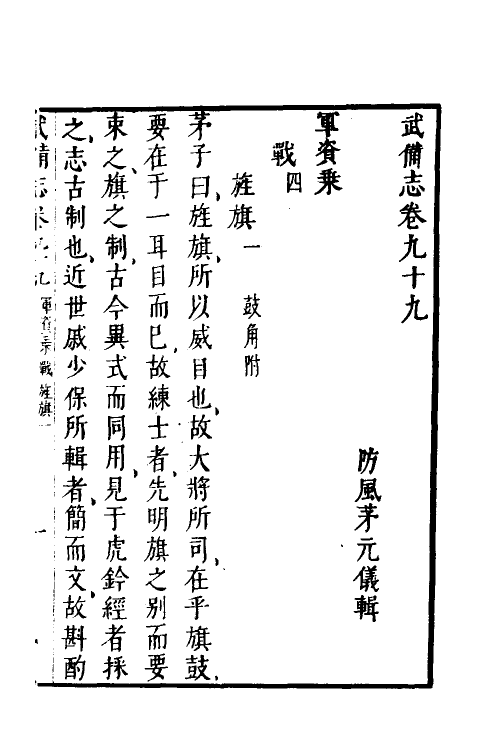 武備志卷九十九
防風茅元儀輯
軍資乘
戰四
旌旗一 鼓角附
茅子曰、旌旗、所以威目也、故大將所司、在乎旗鼓、
要在于一耳目而已、故練士者、先明旗之別而要
束之、旗之制、古今異式而同用、見于虎鈐經者、採
之、志古制也、近世戚少保所輯者、簡而文、故斟酌
武備志卷九十九 軍資乘 戰 旌旗一 一